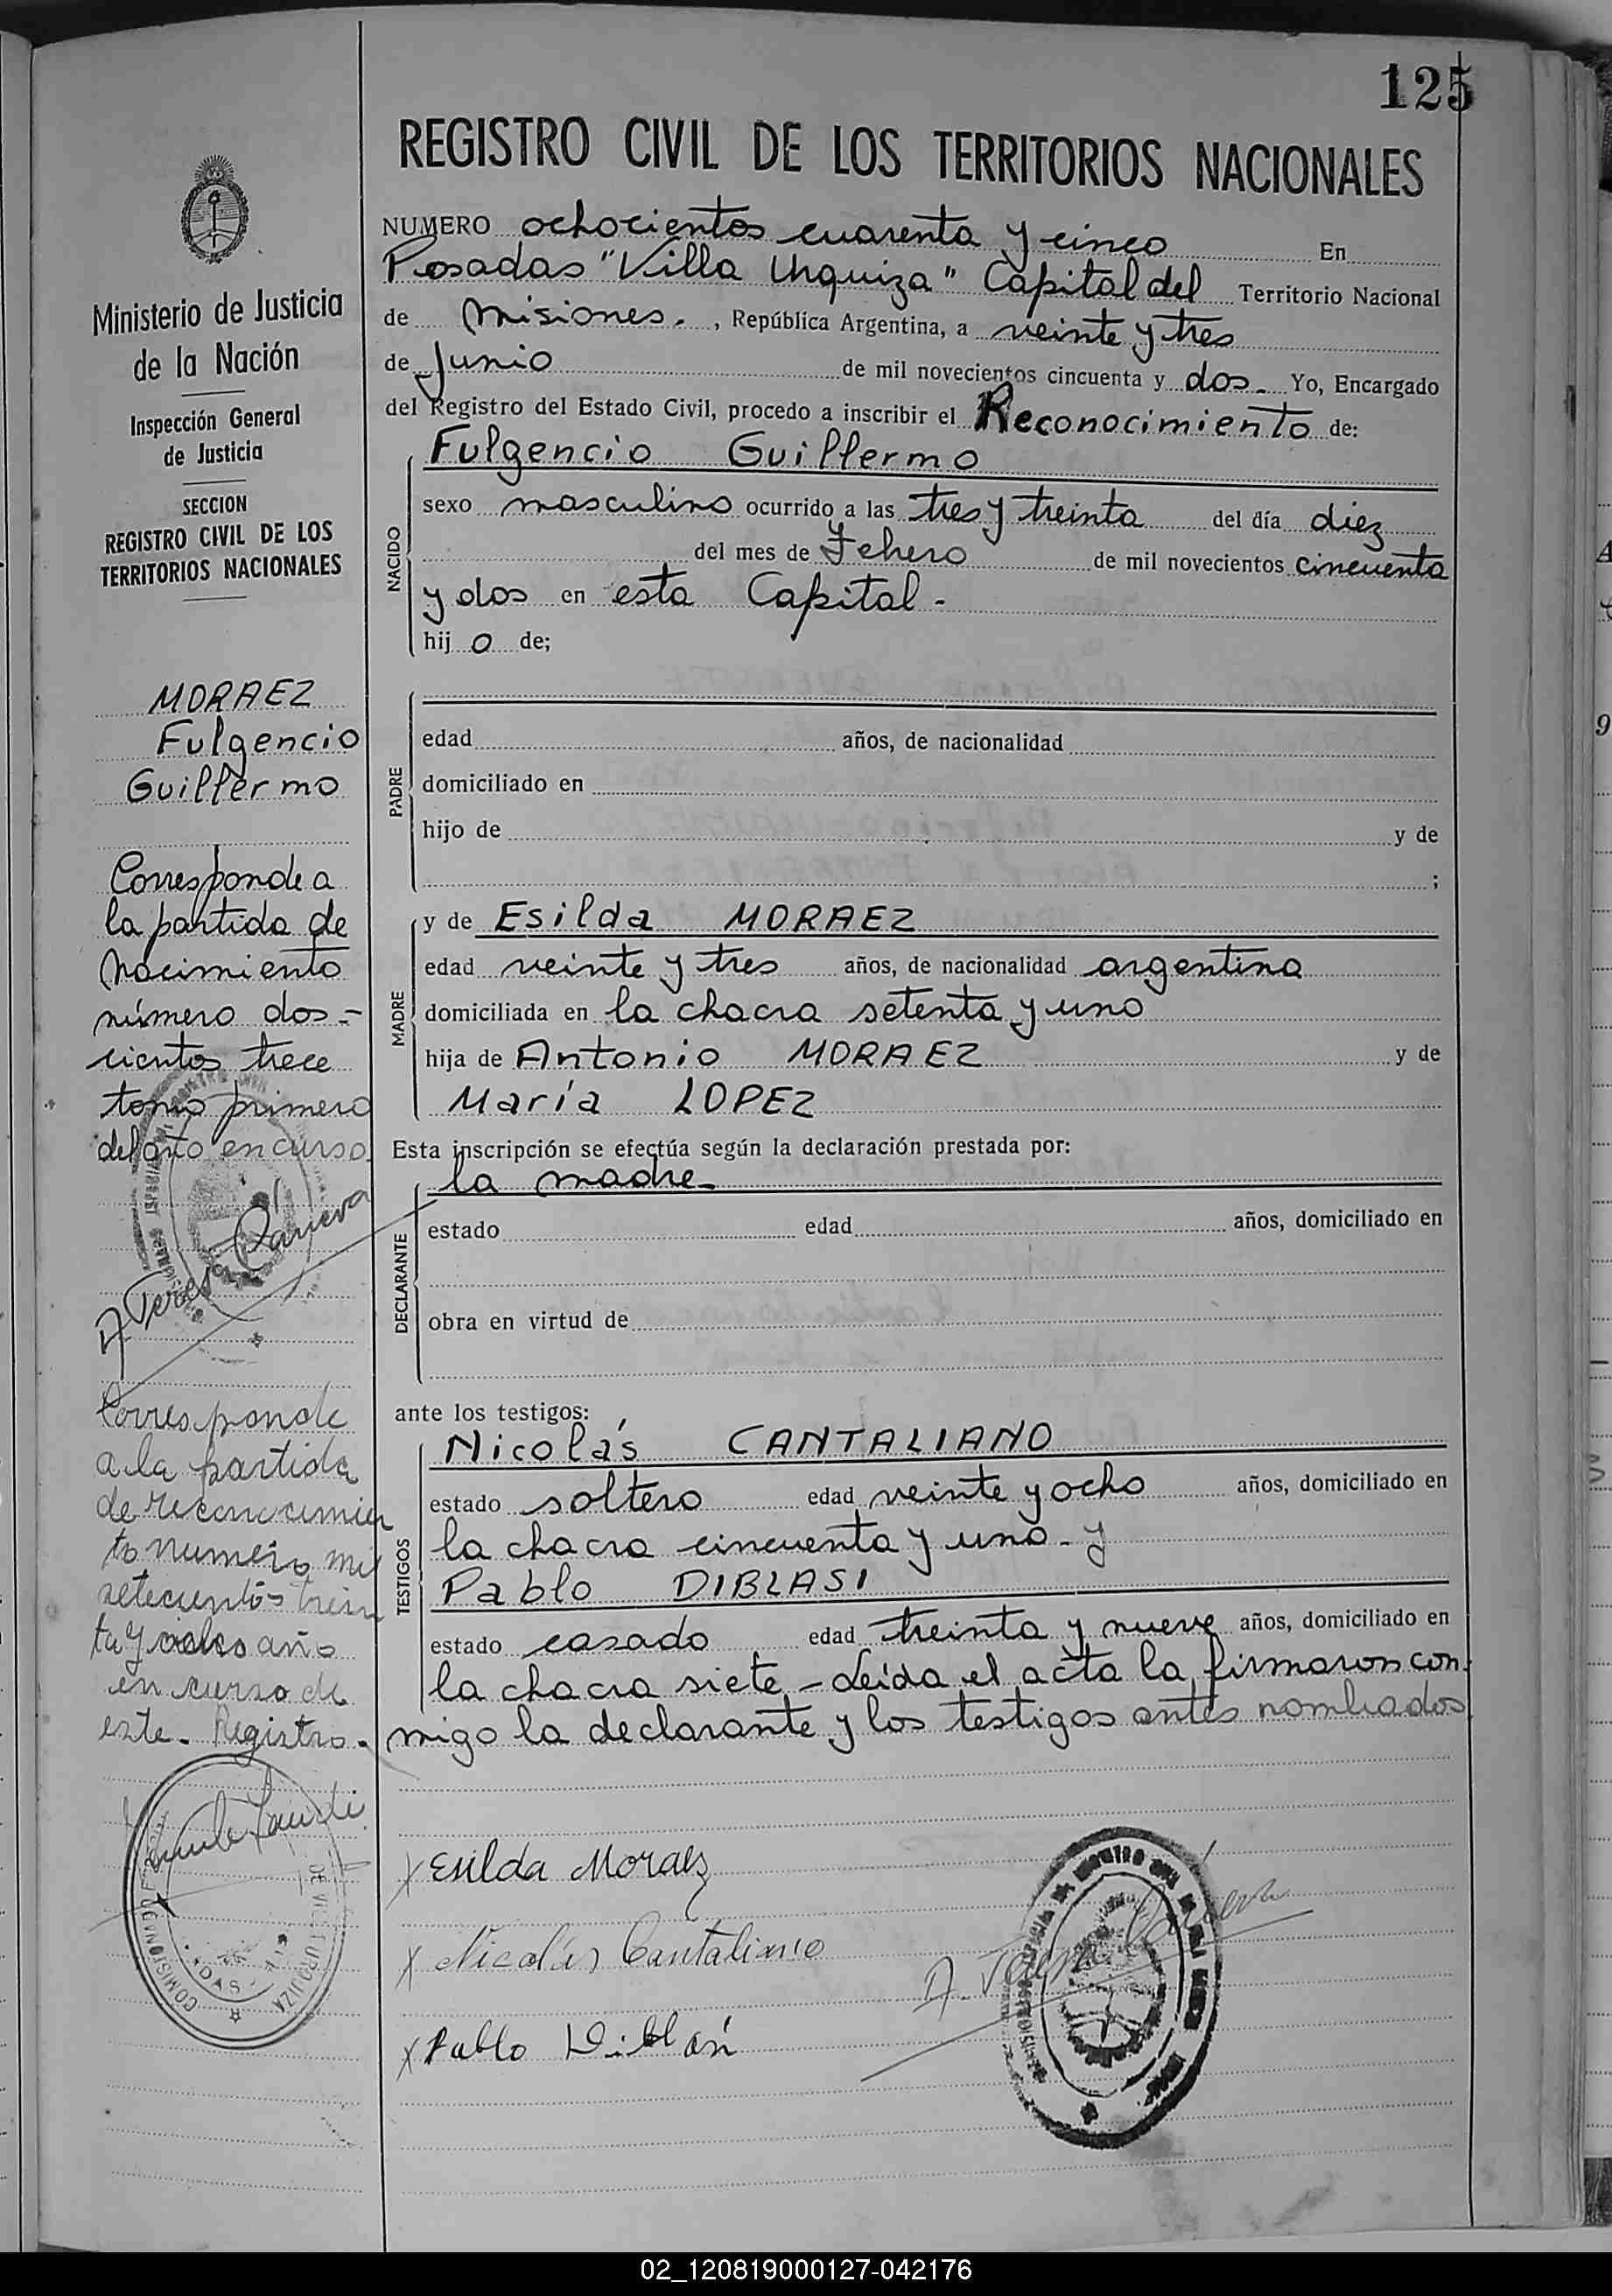 125
REGISTRO CIVIL DE LOS TERRITORIOS NACIONALES
Ministerio de Justicia
de la Nación
Inspección General
de Justicia
SECCION
REGISTRO CIVIL DE LOS
TERRITORIOS NACIONALES
MORAEZ
Fulgencio
Guillermo
Corresponde a
la partida de
Nacimiento
número dos-
cientos trece
tomo primero
del año en curso
A. Teresa
Corresponde
a la partida
de reconocimien
to numero mil
setecientos trein
ta y año
en curso de
este. Registro.
NUMERO ochocientos cuarenta y cinco En
Posadas "Villa Urquiza" Capital del Territorio Nacional
de Misiones. , República Argentina, a veinte y tres
de Junio de mil novecientos cincuenta y dos. Yo, Encargado
del Registro del Estado Civil, procedo a inscribir el Reconocimiento de:
Fulgencio Guillermo
NACIDO
sexo masculino ocurrido a las tres y treinta del día diez
del mes de Febrero de mil novecientos cincuenta
y dos en esta Capital -
hij o de;
PADRE
edad años, de nacionalidad
domiciliado en
hijo de y de
;
MADRE
y de Esilda MORAEZ
edad veinte y tres años, de nacionalidad argentina
domiciliada en la chacra setenta y uno
hija de Antonio MORAEZ y de
María LOPEZ
Esta inscripción se efectúa según la declaración prestada por:
DECLARANTE
la madre
estado edad años, domiciliado en
obra en virtud de
ante los testigos:
TESTIGOS
Nicolás CANTALIANO
estado soltero edad veinte y ocho años, domiciliado en
la chacra cincuenta y uno - y
Pablo DIBLASI
estado casado edad treinta y nueve años, domiciliado en
la chacra siete - Leída el acta la firmaron con-
migo la declarante y los testigos antes nombrados
x Esilda Moraez
x Nicolás Cantaliano
A. Teresa
x Pablo Diblasi
02_120819000127-042176